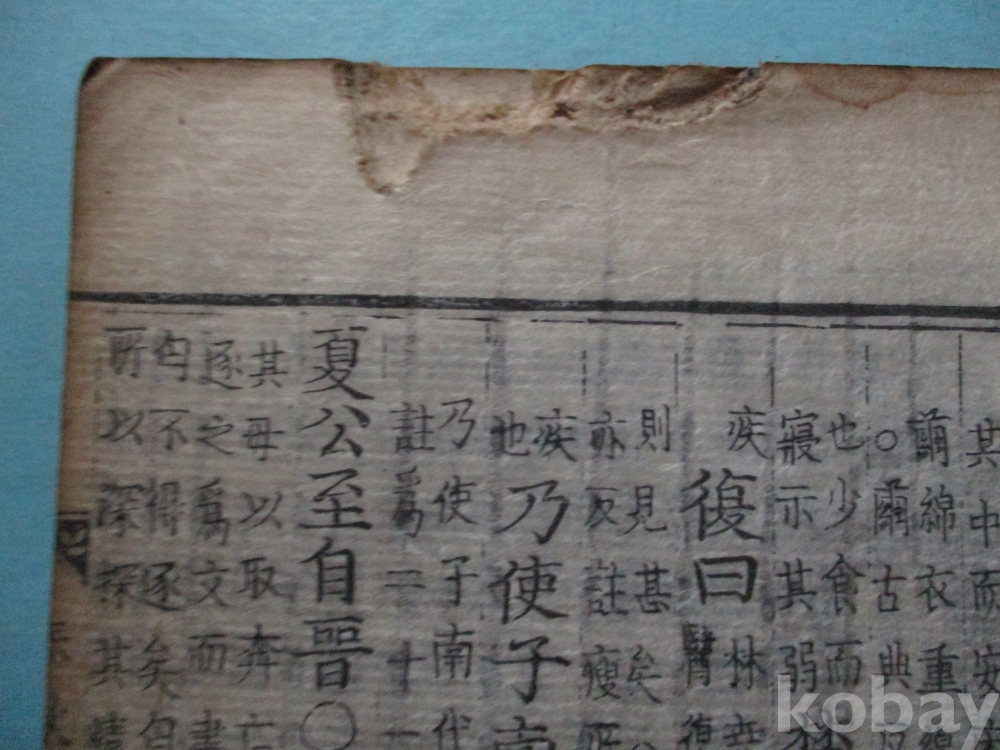 其中而安
繭綿衣重
○繭古典
也少食而
寢示其弱
疾 林
復曰
醫復
則見甚矣
亦反註瘦所
疾
也
乃使子南
乃使子南代
註爲二十一
夏公至自晉○
其母以取奔亡
逐之爲文而書
匄不得逐矣匄
所以深探其情
kobay